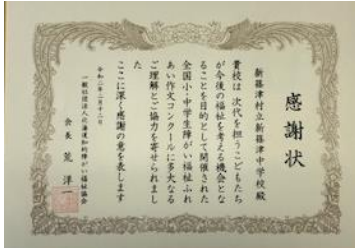 感謝状
新篠津村立新篠津中学校殿
貴校は 次代を担うこどもたち
が今後の福祉を考える機会とな
ることを目的として開催された
全国小・中学生障がい福祉ふれ
あい作文コンクールに多大なる
ご理解とご協力を寄せられまし
た
ここに深く感謝の意を表します
令和二年二月十二日
一般社団法人北海道知的障がい福祉協会
会長 荒 洋一